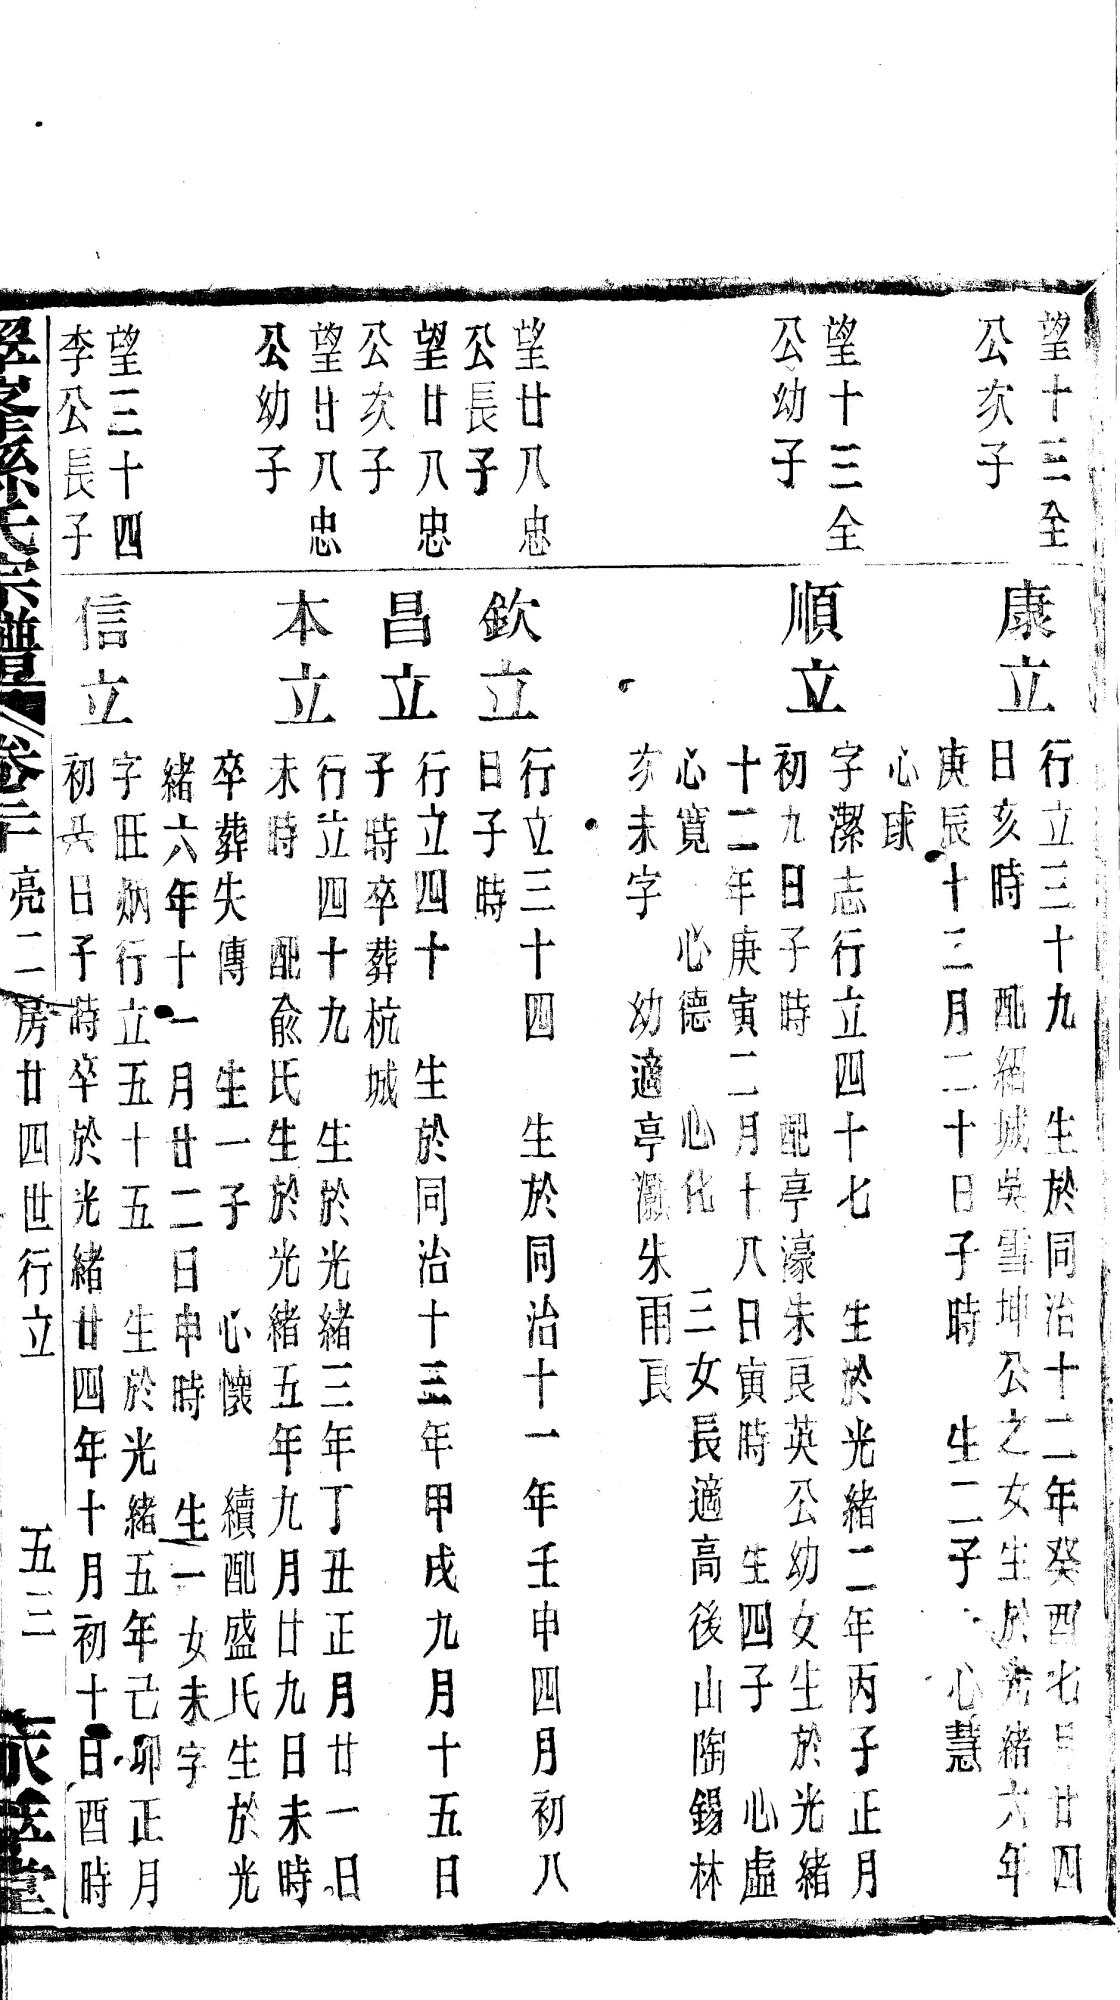 望十三全
公次子
康立
行立三十九　生於同治十二年癸酉七月廿四
日亥時　配紹城吳雪坤公之女生於光緒六年
庚辰十三月二十日子時　生二子　心慧
心球
望十三全
公幼子
順立
字潔志行立四十七　生於光緒二年丙子正月
初九日子時　配亭濠朱良英公幼女生於光緒
十二年庚寅二月十八日寅時　生四子　心虛
心寬　心德　心化　三女長適高後山陶錫林
次未字　幼適亭灝朱雨良
望廿八忠
公長子
欽立
行立三十四　生於同治十一年壬申四月初八
日子時
望廿八忠
公次子
昌立
行立四十　生於同治十三年甲戌九月十五日
子時卒葬杭城
望廿八忠
公幼子
本立
行立四十九　生於光緒三年丁丑正月廿一日
未時　配俞氏生於光緒五年九月廿九日未時
卒葬失傳　生一子　心懷　續配盛氏生於光
緒六年十一月廿二日申時　生一女未字
望三十四
李公長子
信立
字旺炳行立五十五　生於光緒五年己卯正月
初六日子時卒於光緒廿四年十月初十日酉時
孫氏宗譜　卷二十　亮二房廿四世行立　五三　堂